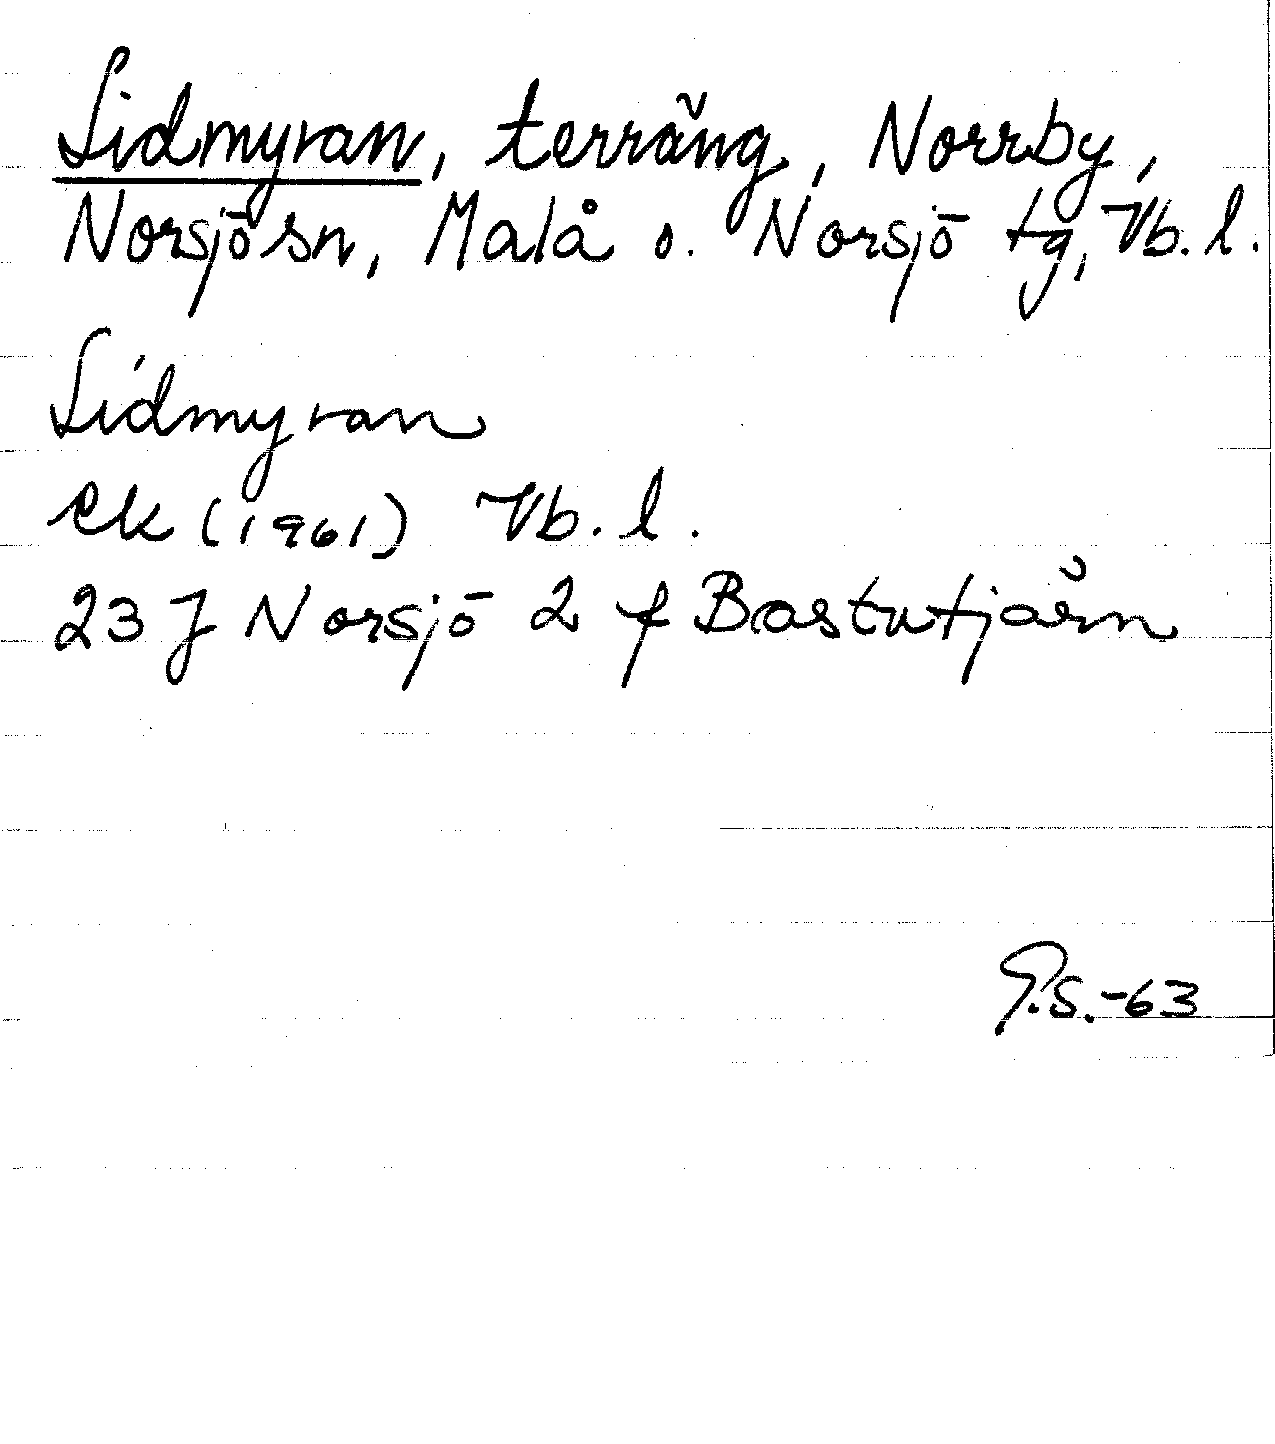 Lidmyran, terräng, Norrby,
Norsjö sn, Malå o. Norsjö tg, Vb. l.
Lidmyran
ek (1961) Vb. l.
23 J Norsjö 2 f Bastutjärn
G.S.-63